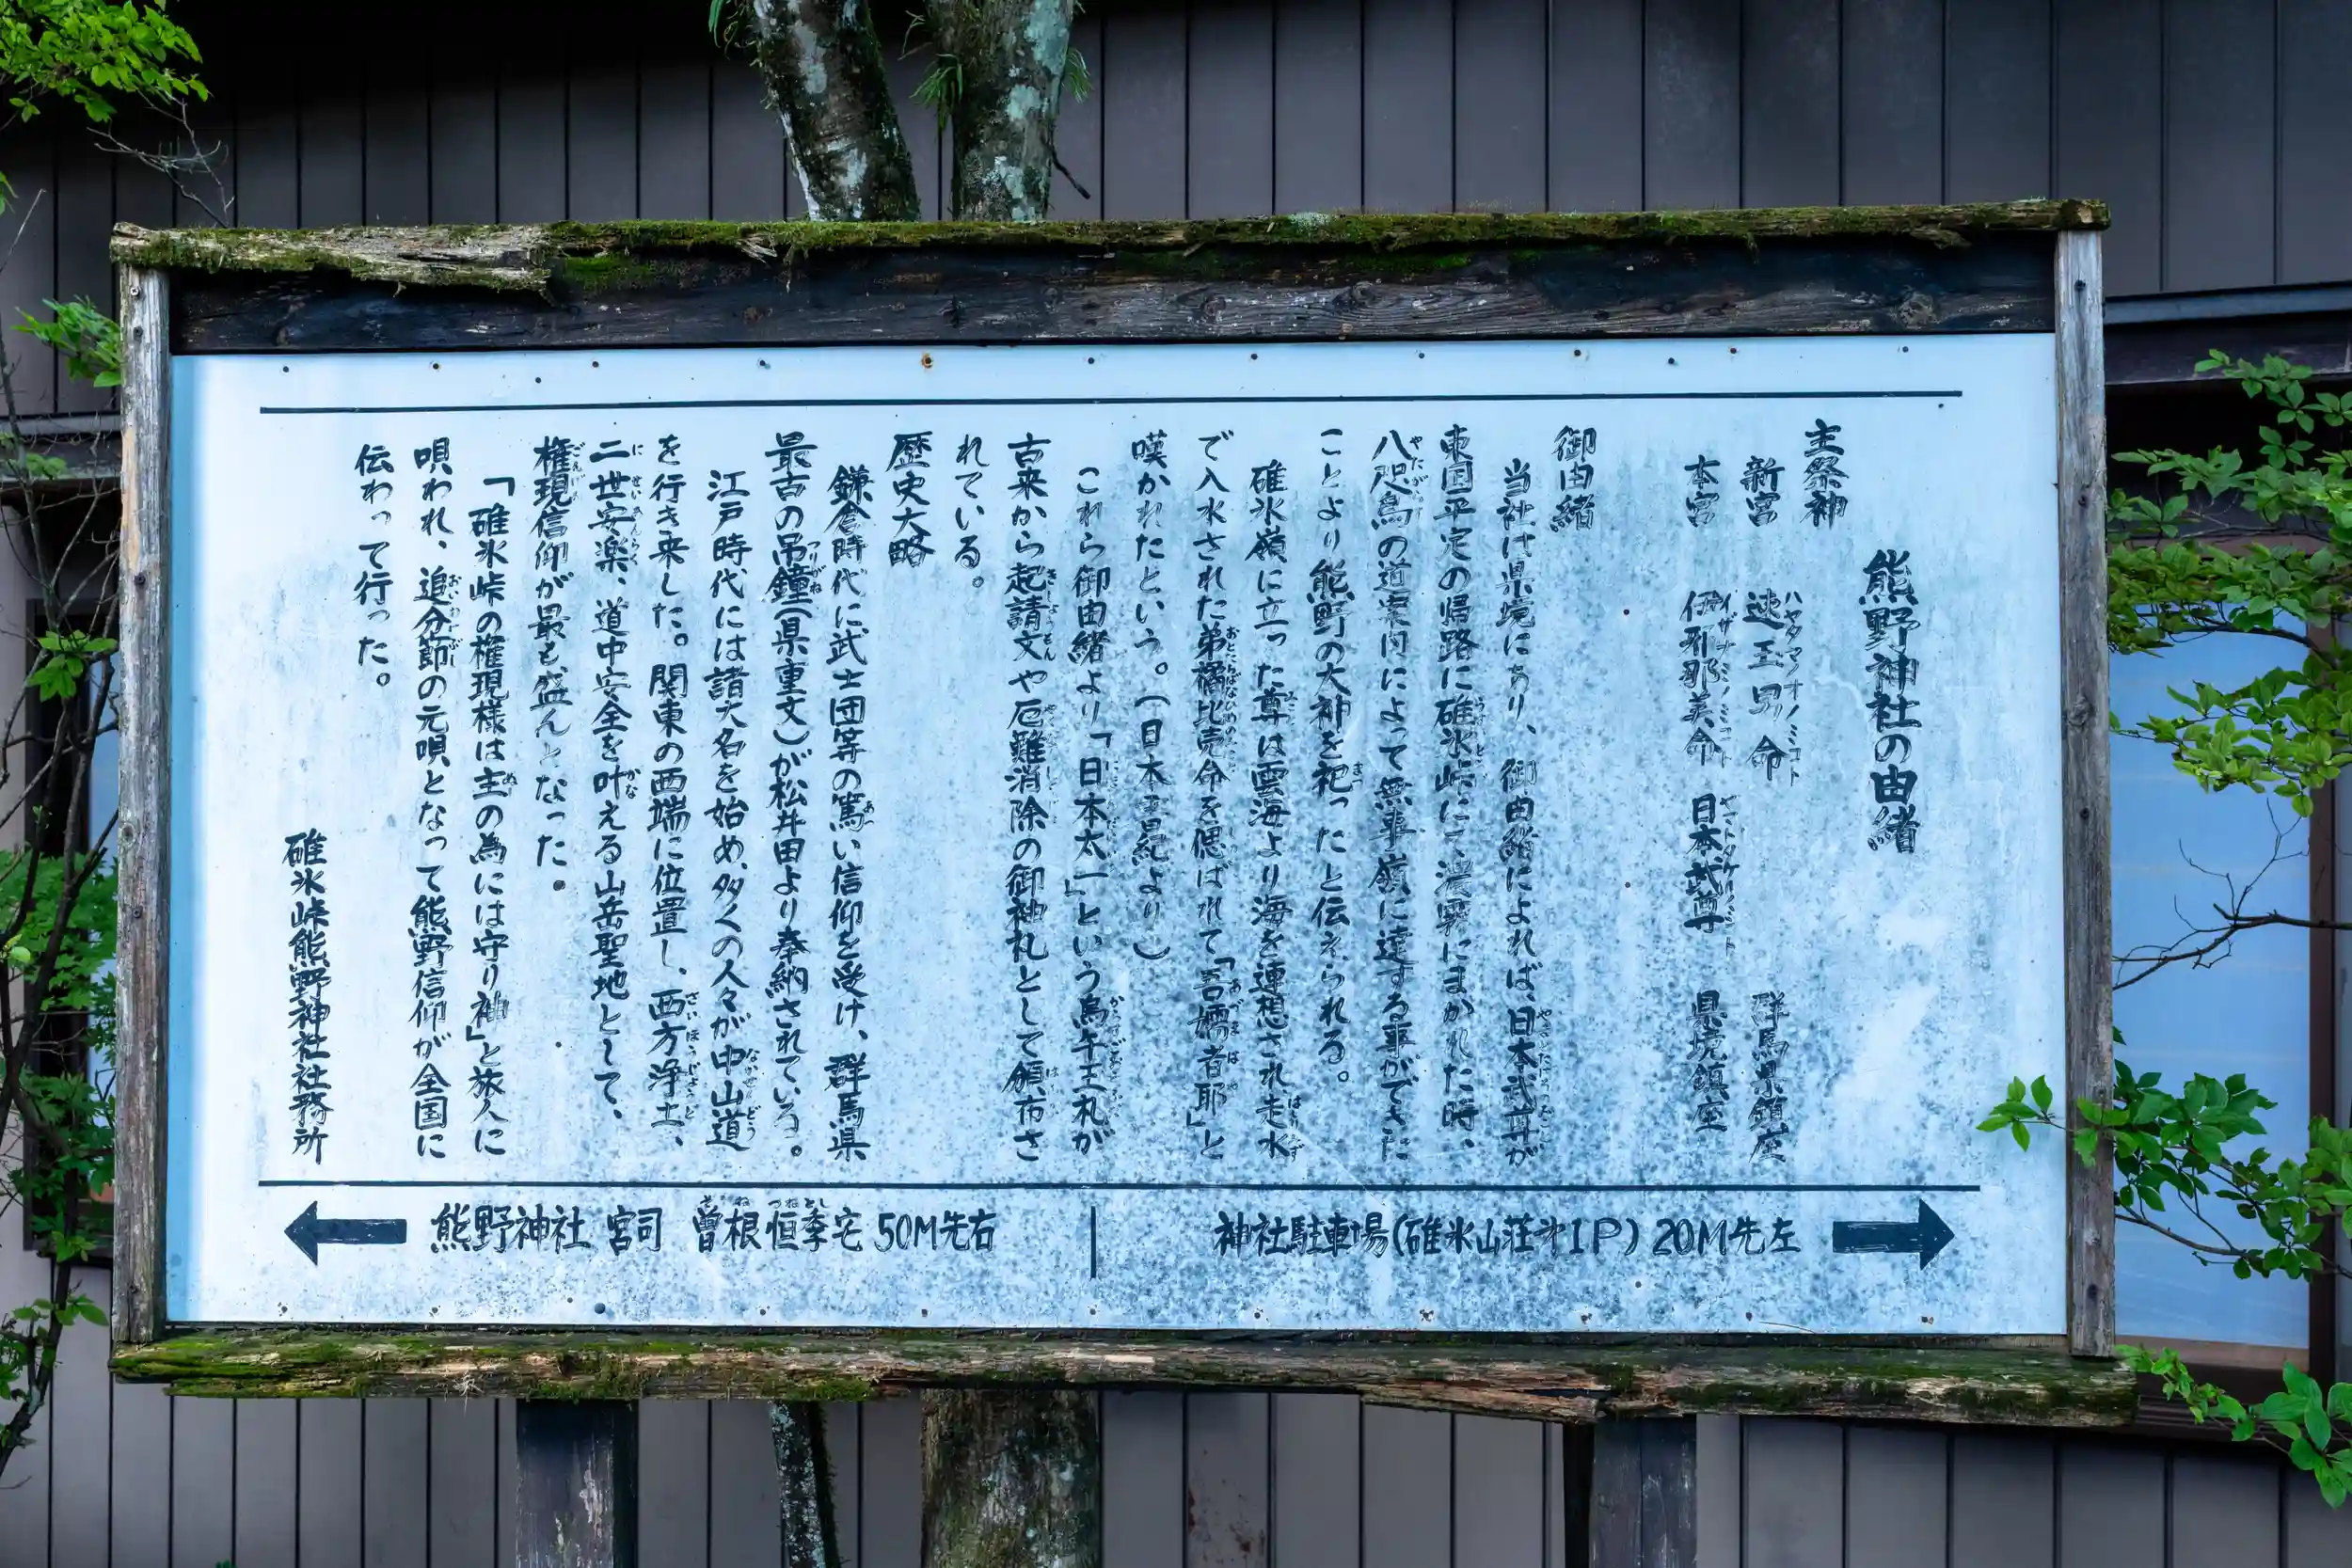 熊野神社の由緒
主祭神
新宮 速玉男命 群馬県鎮座
本宮 伊邪那美命 日本武尊 県境鎮座
御由緒
当社は県境にあり、御由緒によれば、日本武尊が
東国平定の帰路に碓氷峠にて濃霧にまかれた時、
八咫烏の道案内によって無事嶺に達する事ができた
ことより熊野の大神を祀ったと伝えられる。
碓氷嶺に立った尊は雲海より海を連想され走水
で入水された弟橘比売命を偲ばれて「吾嬬者耶」と
嘆かれたという。(日本書紀より)
これら御由緒より「日本太一」という烏午王札が
古来から起請文や厄難消除の御神札として頒布さ
れている。
歴史大略
鎌倉時代に武士団等の篤い信仰を受け、群馬県
最古の吊鐘(県重文)が松井田より奉納されている。
江戸時代には諸大名を始め、多くの人々が中山道
を行き来した。関東の西端に位置し、西方浄土、
二世安楽、道中安全を叶える山岳聖地として、
権現信仰が最も盛んとなった。
「碓氷峠の権現様は主の為には守り神」と旅人に
唄われ、追分節の元唄となって熊野信仰が全国に
伝わって行った。
碓氷峠熊野神社社務所
← 熊野神社 宮司 曽根恒季宅 50M先右
神社駐車場(碓氷山荘㐧1P) 20M先左 →